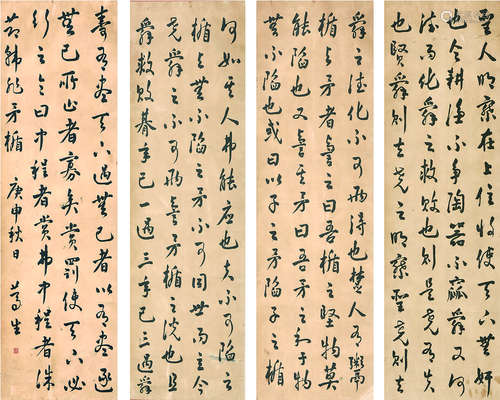 聖人明察在上位將使天下無奸
也今耕漁不爭陶器不窳舜又何
德而化舜之救敗也則是堯有失
也賢舜則去堯之明察聖堯則去
舜之德化不可兩得也楚人有鬻
楯與矛者譽之曰吾楯之堅物莫
能陷也又譽其矛曰吾矛之利于物
無不陷也或曰以子之矛陷子之楯
何如其人弗能應也夫不可陷之
楯與無不陷之矛不可同世而立今
堯舜之不可兩譽矛楯之說也且
舜救敗朞年已一過三年已三過舜
壽有盡天下過無已者以有盡逐
無已所止者寡矣賞罰使天下必
行之令曰中程者賞弗中程者誅
節韓非矛楯 庚申秋日